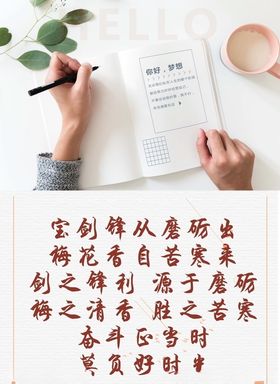 HELLO
你好，梦想
宝剑锋从磨砺出
梅花香自苦寒来
剑之锋利 源于磨砺
梅之清香 胜之苦寒
奋斗正当时
莫负好时光